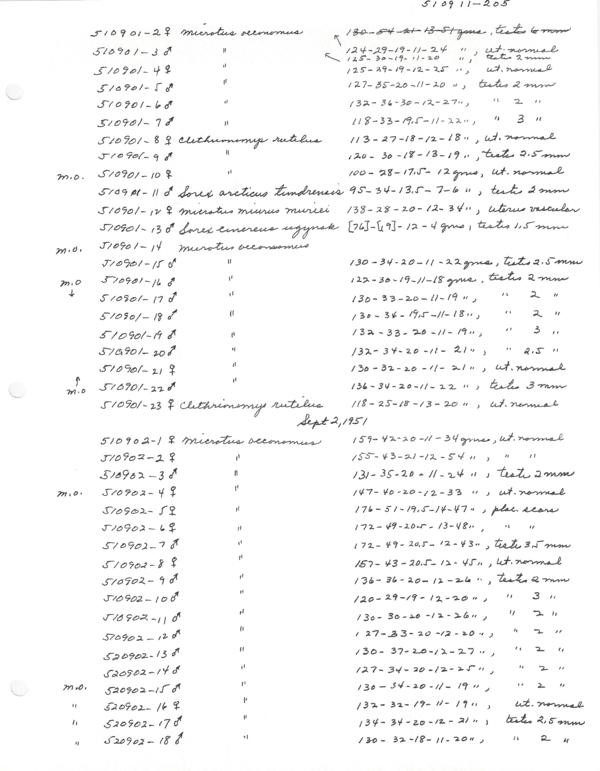 510911-205
510901-2 ♀ Microtus oeconomus 180-54-21-13-51 gms, testis 6 mm
510901-3 ♂ " 124-29-19-11-24 ", ut. normal
125-30-19-11-20 ", testis 2 mm
510901-4 ♀ " 125-29-19-12-25 ", ut. normal
510901-5 ♂ " 127-35-20-11-20 ", testis 2 mm
510901-6 ♂ " 132-36-30-12-27 ", " 2 "
510901-7 ♂ " 118-33-19.5-11-22 ", " 3 "
510901-8 ♀ Clethrionomys rutilus 113-27-18-12-18 ", ut. normal
510901-9 ♂ " 120-30-18-13-19 ", testis 2.5 mm
m.o. 510901-10 ♀ " 100-28-17.5-12 gms, ut. normal
510901-11 ♂ Sorex arcticus tundrensis 95-34-13.5-7-6 ", testis 2 mm
510901-12 ♀ Microtus miurus muriei 138-28-20-12-34 ", uterus vascular
510901-13 ♂ Sorex cinereus ugyunak [76]-[19]-12-4 gms, testis 1.5 mm
m.o. 510901-14 Microtus oeconomus
510901-15 ♂ " 130-34-20-11-22 gms, testis 2.5 mm
m.o ↓ 510901-16 ♂ " 122-30-19-11-18 gms, testis 2 mm
510901-17 ♂ " 130-33-20-11-19 ", " 2 "
510901-18 ♂ " 130-36-19.5-11-18 ", " 2 "
510901-19 ♂ " 132-33-20-11-19 ", " 3 "
510901-20 ♂ " 132-34-20-11-21 ", " 2.5 "
510901-21 ♀ " 130-32-20-11-21 ", ut. normal
↑ m.o 510901-22 ♂ " 136-34-20-11-22 ", testis 3 mm
510901-23 ♀ Clethrionomys rutilus 118-25-18-13-20 ", ut. normal
Sept 2, 1951
510902-1 ♀ Microtus oeconomus 159-42-20-11-34 gms, ut. normal
510902-2 ♀ " 155-43-21-12-54 ", " "
510902-3 ♂ " 131-35-20-11-24 ", testis 2 mm
m.o. 510902-4 ♀ " 147-40-20-12-33 ", ut. normal
510902-5 ♀ " 176-51-19.5-14-47 ", plac. scars
510902-6 ♀ " 172-49-20.5-13-48 ", " "
510902-7 ♂ " 172-49-20.5-12-43 ", testis 3.5 mm
510902-8 ♀ " 157-43-20.5-12-45 ", ut. normal
510902-9 ♂ " 136-36-20-12-26 ", testis 2 mm
510902-10 ♂ " 120-29-19-12-20 ", " 3 "
510902-11 ♂ " 130-30-20-12-26 ", " 2 "
510902-12 ♂ " 127-33-20-12-20 ", " 2 "
520902-13 ♂ " 130-37-20-12-27 ", " 2 "
520902-14 ♂ " 127-34-20-12-25 ", " 2 "
m.o. 520902-15 ♂ " 130-34-20-11-19 ", " 2 "
" 520902-16 ♀ " 132-32-19-11-19 ", ut. normal
" 520902-17 ♂ " 134-34-20-12-21 ", testis 2.5 mm
" 520902-18 ♂ " 130-32-18-11-20 ", " 2 "